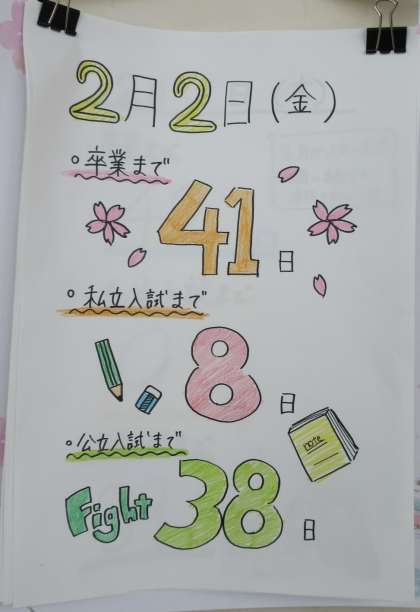 2月2日(金)
○卒業まで
41日
○私立入試まで
8日
note
○公立入試まで
Fight 38日